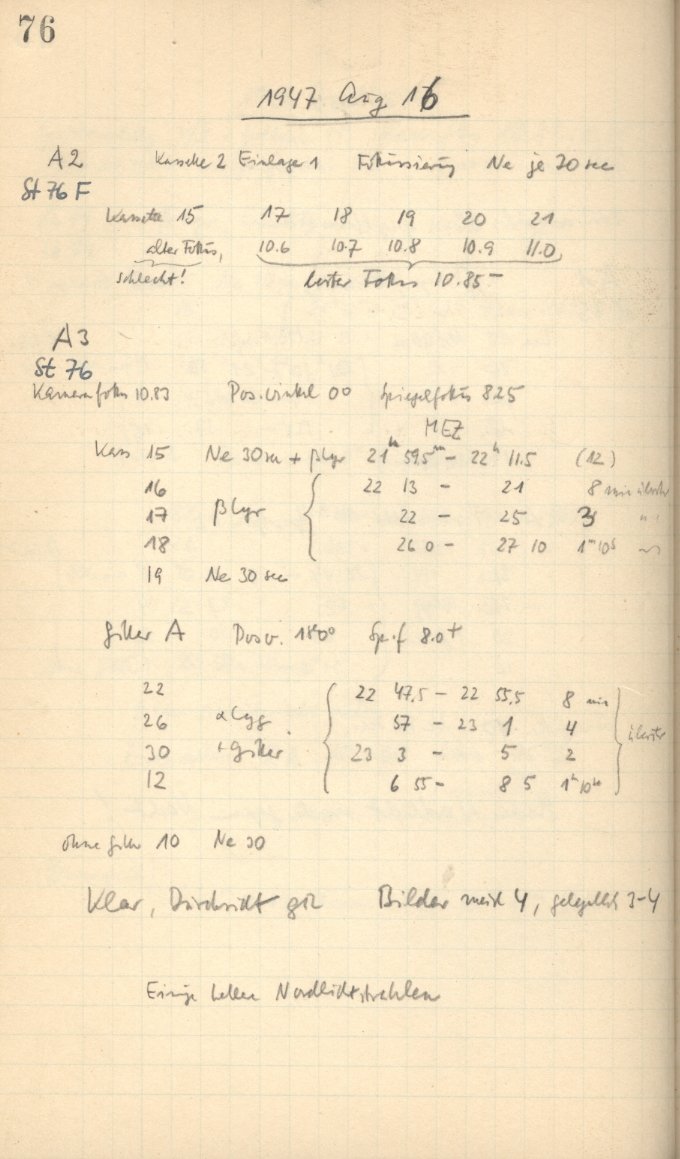 76
1947 Aug 16
A2 Kassette 2 Einlage 1 Fokussierung Ne je 30 sec
St 76 F
Kassette 15 17 18 19 20 21
alter Fokus, 10.6 10.7 10.8 10.9 11.0
schlecht! bester Fokus 10.85
A3
St 76
Kamerafokus 10.83 Pos.winkel 0° Spiegelfokus 825
MEZ
Kass 15 Ne 30 sec + β Lyr 21h 59.5m – 22h 11.5 (12)
16 22 13 – 21 8 min
17 β Lyr 22 – 25 3
18 26 0 – 27 10 1m 10s
19 Ne 30 sec
Gitter A Posw. 180° Sp.f 8.0+
22 22 47,5 – 22 55,5 8 min
26 α Cyg 57 – 23 1 4
30 + Gitter 23 3 – 5 2
12 6 55 – 8 5
ohne Gitter 10 Ne 30
Klar, Durchsicht gut Bilder meist 4, gelegentlich 3-4
Einige helle Nordlichtstrahlen